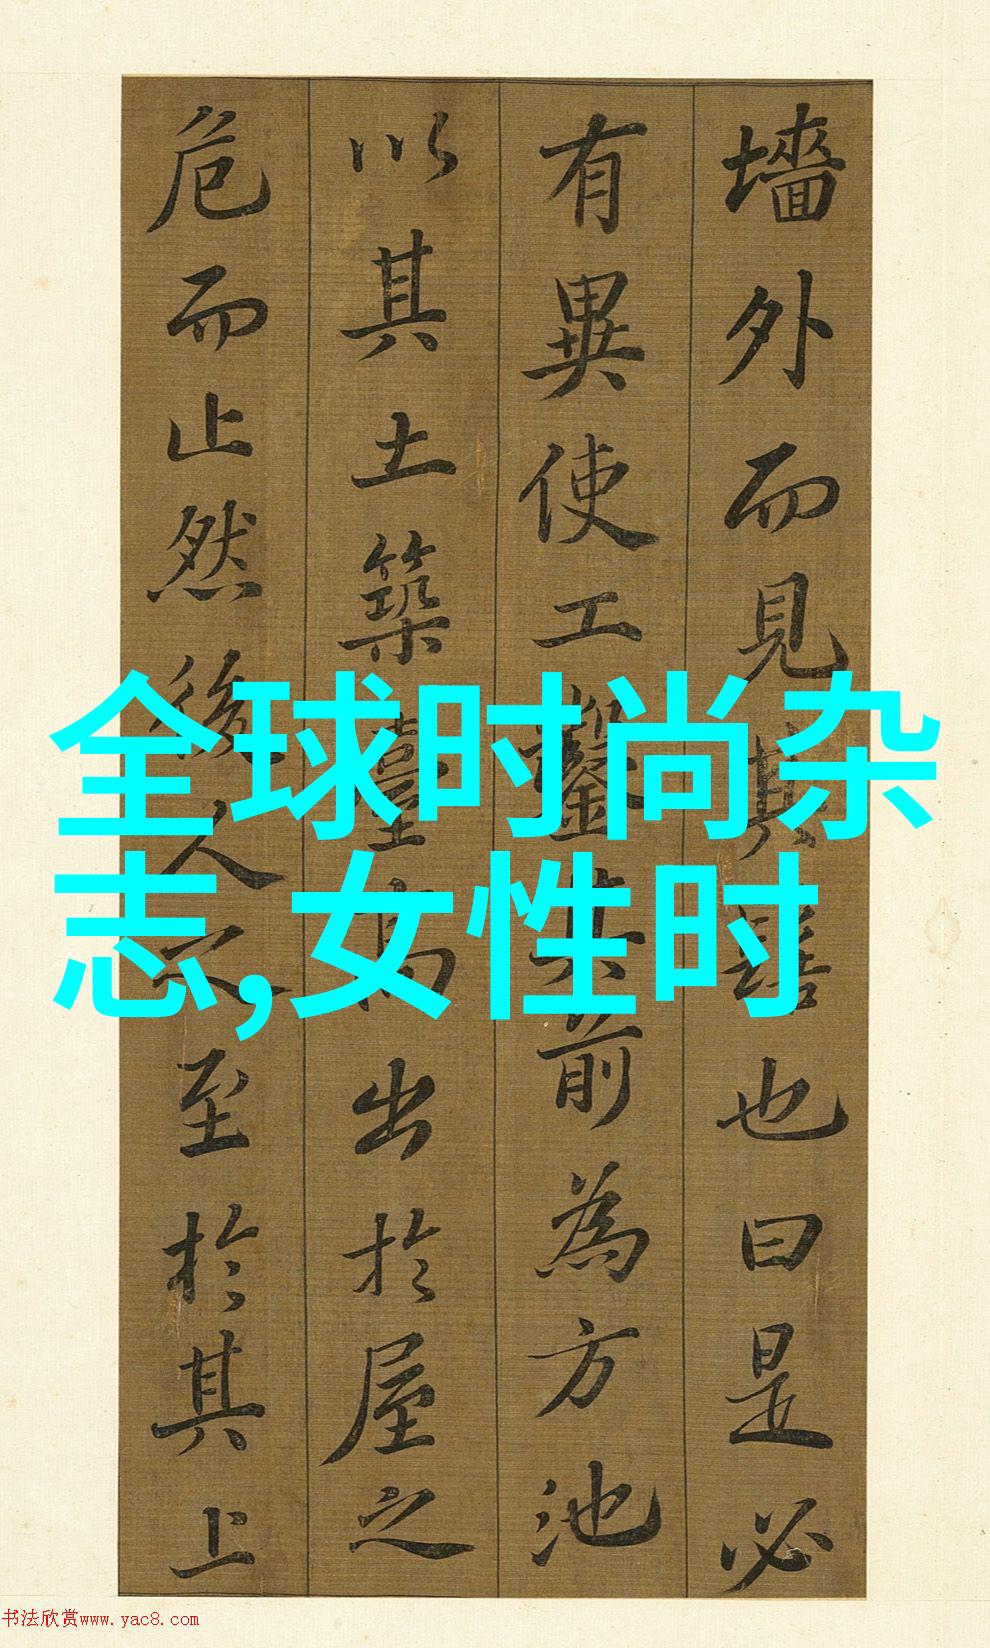 墻外而見其髻也曰是必
有異使工鑿其前為方池
以其土築臺高出於屋之
危而止然後人之至於其上
全球时尚杂
志,女性时
书法欣赏www.yac8.com